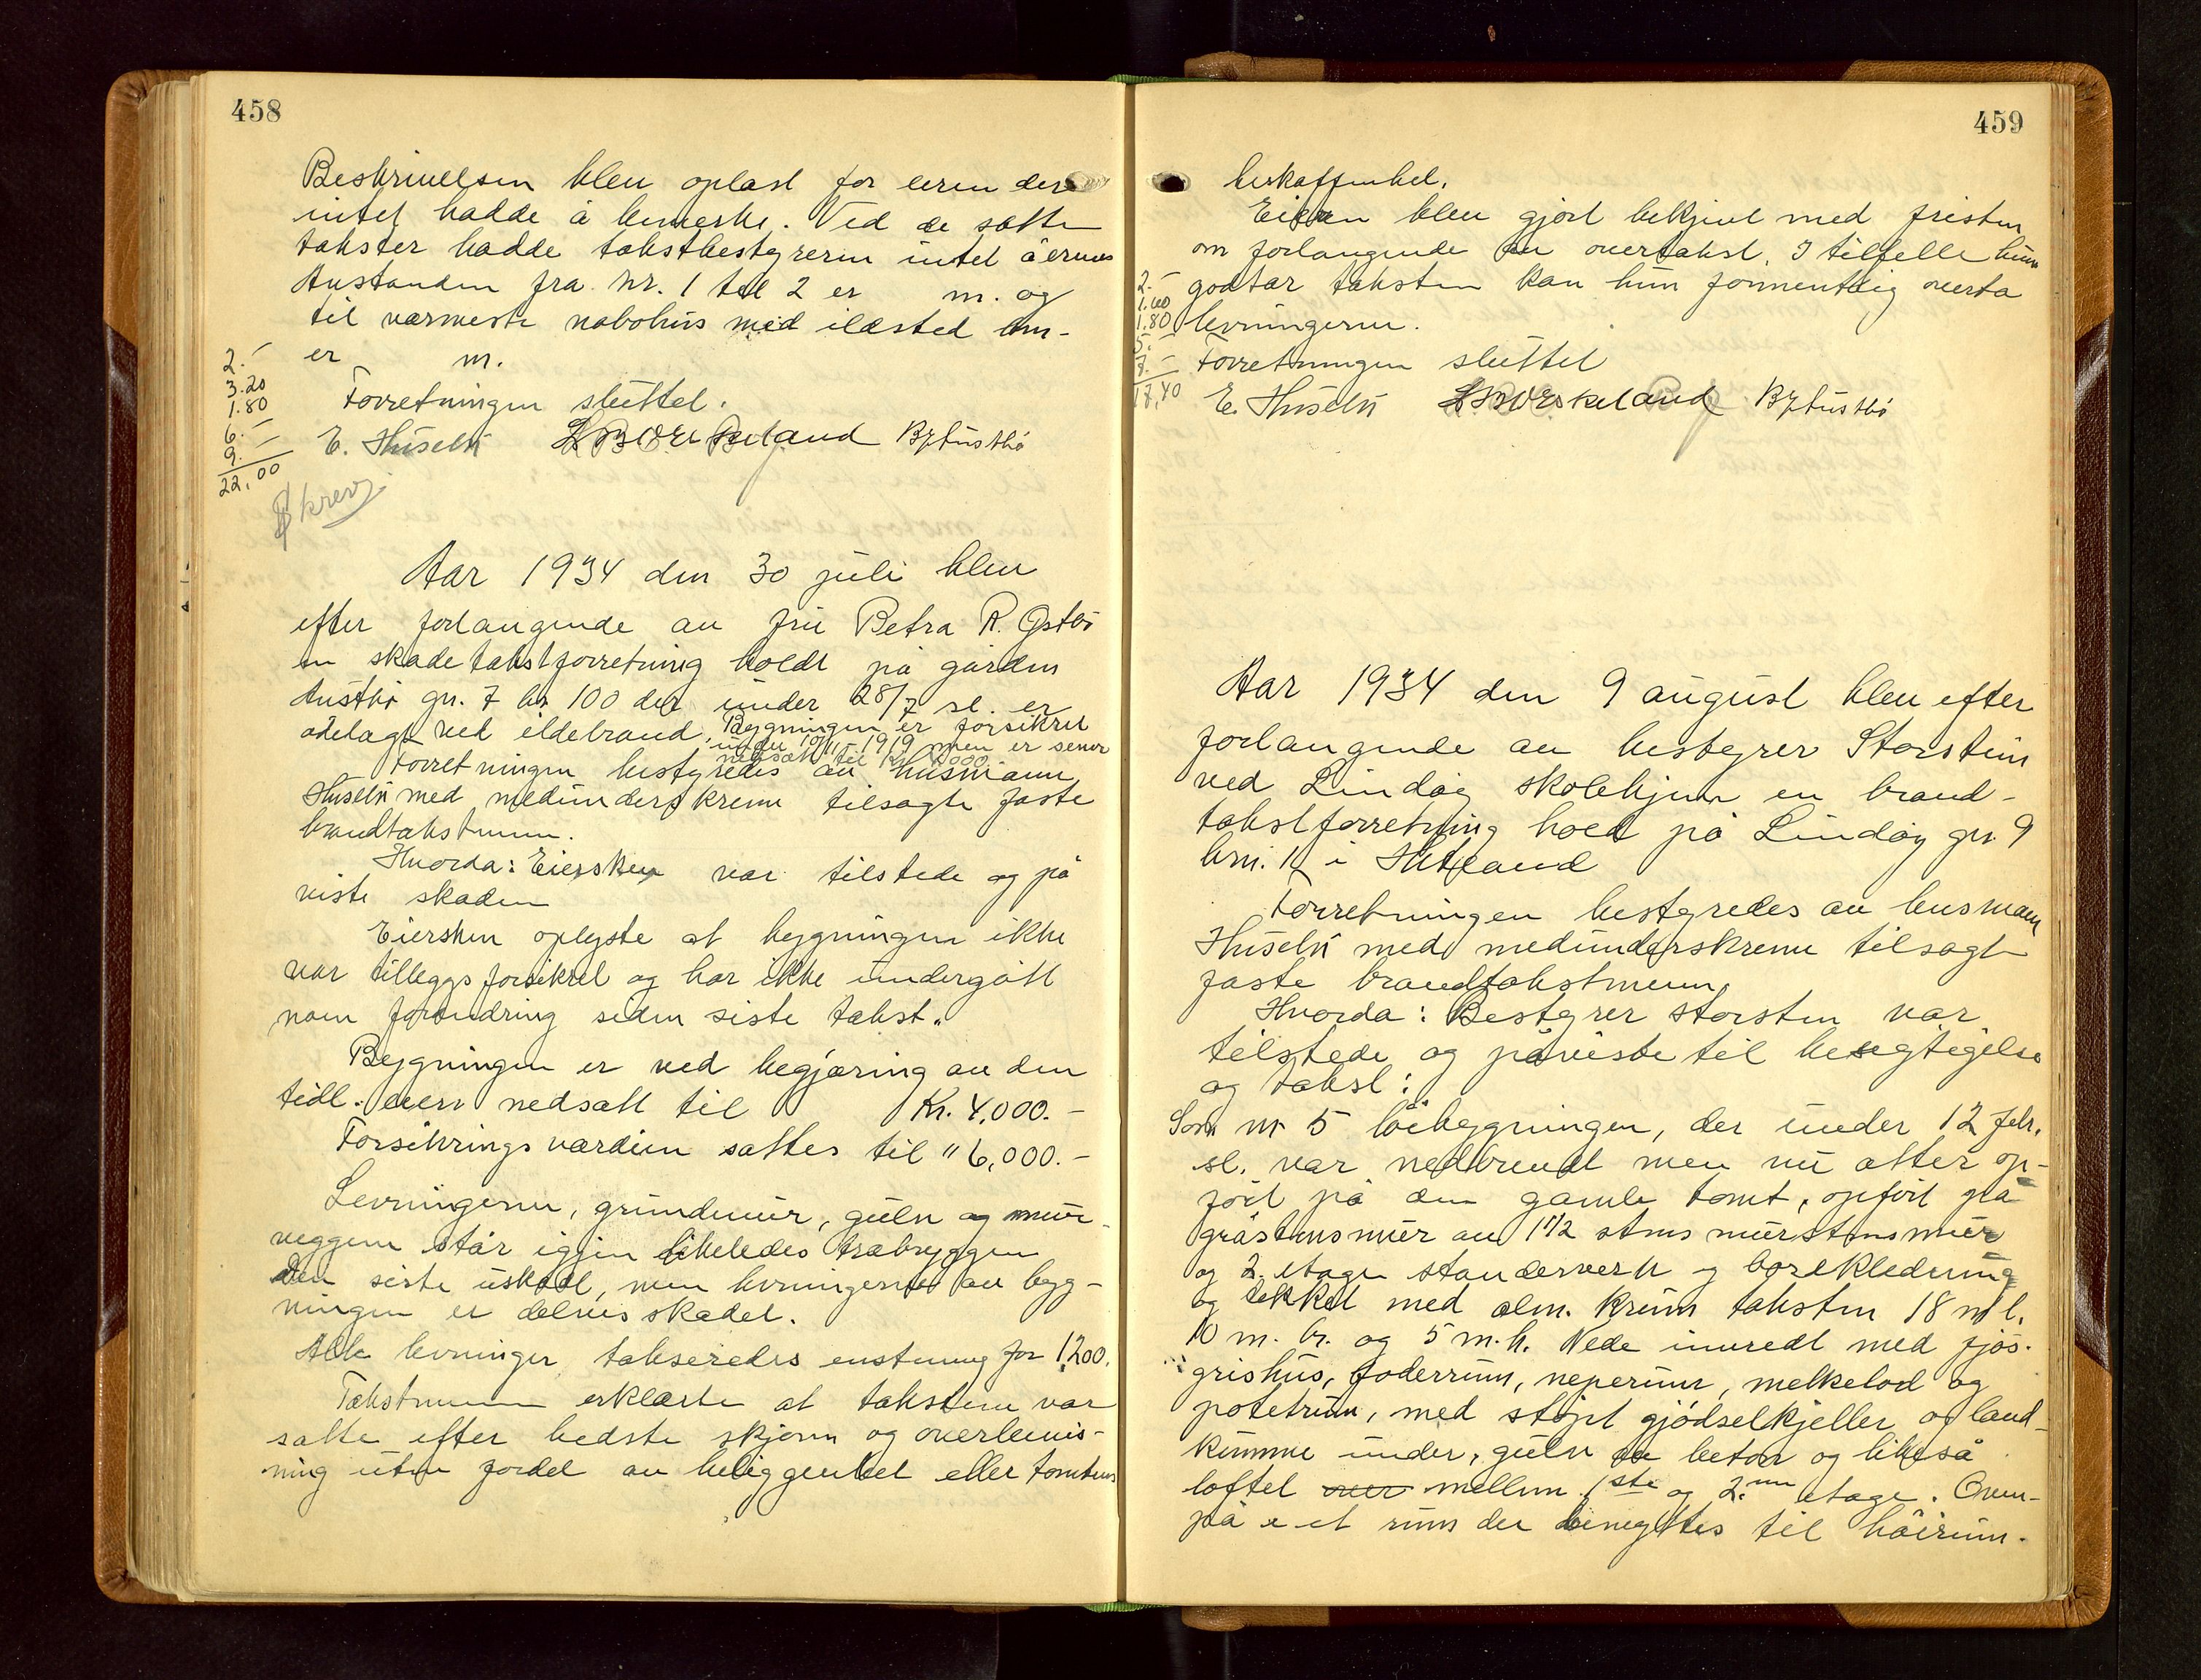 458
Beskrivelsen blev oplæst for eieren der
intet hadde å bemerke. Ved de satte
takster hadde takstbestyreren intet å erindre
Avstanden fra nr. 1 til 2 er m. og
til nærmeste nabohus med ildsted
er m.
Forretningen sluttet.
E. Huseby
2.-
3.20
1.80
6.-
9.-
22,00
Skrevj
Aar 1934 den 30 juli blev
efter forlangende av fru Petra R. Østbø
en skadetakstforretning holdt på gården
Austbø gr. 7 br 100 der under 28/7 sl. er
ødelagt ved ildebrand. Bygningen er forsikret
under 10/11-1919 men er senere
nedsatt til Kr. 4000
Forretningen bestyredes av lensmann
Huseby med medunderskrevne tilsagte faste
brandtakstmenn.
Hvorda: Eiersken var tilstede og på
viste skaden
Eiersken oplyste at bygningen ikke
var tilleggsforsikret og har ikke undergått
noen forandring siden siste takst.
Bygningen er ved begjæring av den
tidl. eier nedsatt til Kr. 4,000.-
Forsikringsværdien sattes til " 6,000.-
Levningerne, grundmur, gulv og mur-
veggene står igjen likeledes trabryggen
den siste uskadt, men levningerne av byg-
ningen er delvis skadet.
Alle levninger takseredes enstemmig for 1,200.
Takstmenn erklærte at takstene var
satte efter bedste skjønn og overbevis-
ning uten fordel av beliggenhet eller tomtens
459
beskaffenhet.
Eieren blev gjort bekjent med fristen
om forlangende av overtakst. I tilfelle hun
godtar taksten kan hun formentlig overta
levningerne.
Forretningen sluttet
E. Huseby
2.-
1.60
1.80
5.-
7.-
17,40
Aar 1934 den 9 august blev efter
forlangende av bestyrer Storstein
ved Lindøy skolehjem en brand-
takstforretning holdt på Lindøy gr. 9
brn. 1 i Hetland
Forretningen bestyredes av lensmann
Huseby med medunderskrevne tilsagte
faste brandtakstmenn.
Hvorda: Bestyrer Storsten var
tilstede og påviste til besigtigelse
og takst:
Som nr 5 løebygningen, der under 12 febr.
sl. var nedbrendt men nu atter op-
ført på den gamle tomt, opført på
gråstensmur av 1 1/2 stens murstensmur
og 2. etage standerverk og bordkledning
og tekket med alm. krum taksten 18 m l.
10 m. br. og 5 m. h. Nede innredt med fjøs.
grishus, foderrum, neperum, melkebod og
potetrum, med støpt gjødselkjeller og land-
kumme under, gulv av beton og likeså
loftet over mellem 1ste og 2.nen etage. Oven-
på er et rum der benyttes til høirum.